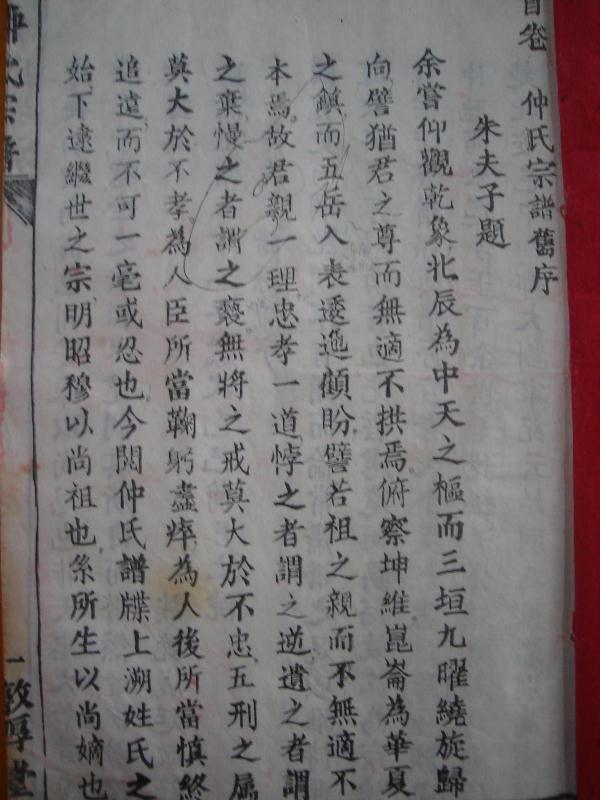 首卷 仲氏宗譜舊序
朱夫子題
余嘗仰觀乾象北辰為中天之樞而三垣九曜繞旋歸
向譬猶君之尊而無適不拱焉俯察坤維崑崙為華夏
之鎮而五岳入表逶迤顧盼譬若祖之親而不無適不
本焉故君親一理忠孝一道悖之者謂之逆遺之者謂
之棄慢之者謂之褻無將之戒莫大於不忠五刑之屬
莫大於不孝為人臣所當鞠躬盡瘁為人後所當慎終
追遠而不可一毫或忍也今閱仲氏譜牒上溯姓氏之
始下逮繼世之宗明昭穆以尚祖也系所生以尚嫡也
仲氏宗譜
一 敦厚堂